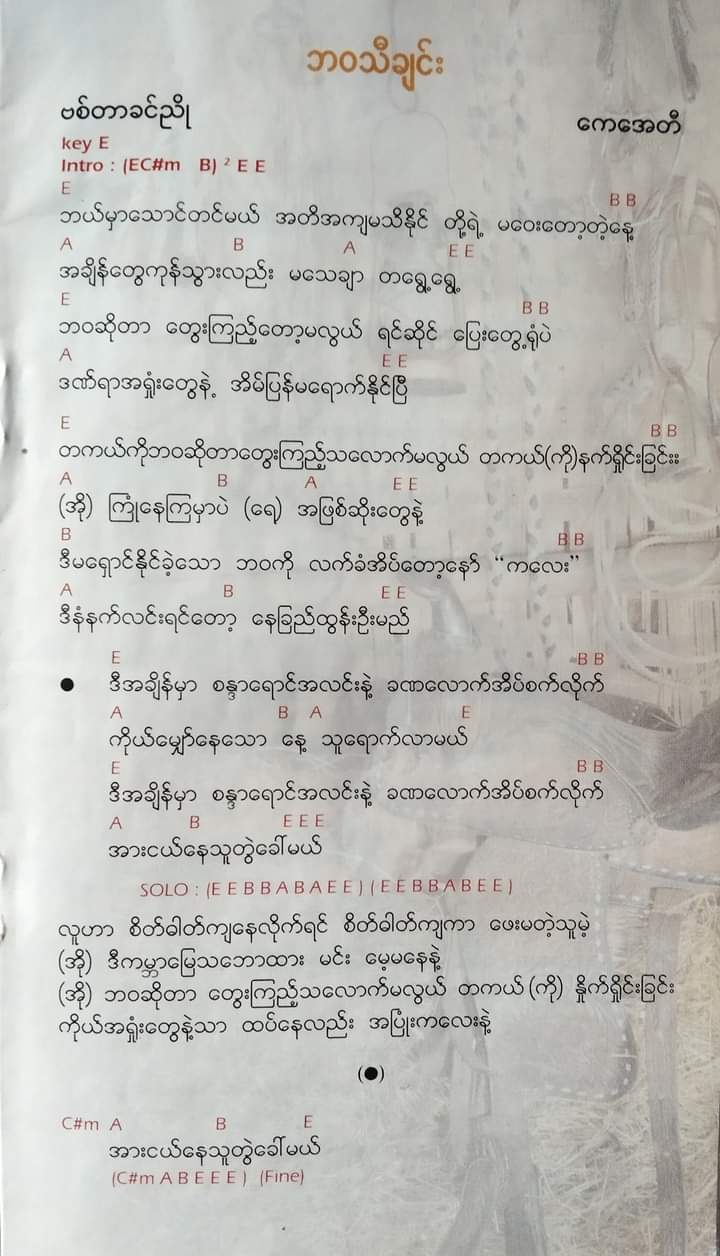 ဘဝသီချင်း
ဗစ်တာခင်ညို
ကေအေတီ
key E
Intro : (EC#m B) ² E E
E B B
ဘယ်မှာသောင်တင်မယ် အတိအကျမသိနိုင် တို့ရဲ့ မဝေးတော့တဲ့နေ့
A B A E E
အချိန်တွေကုန်သွားလည်း မသေချာ တရွေ့ရွေ့
E B B
ဘဝဆိုတာ တွေးကြည့်တော့မလွယ် ရင်ဆိုင် ပြေးတွေ့ရုံပဲ
A E E
ဒဏ်ရာအရှုံးတွေနဲ့ အိမ်ပြန်မရောက်နိုင်ပြီ
E B B
တကယ်ကိုဘဝဆိုတာတွေးကြည့်သလောက်မလွယ် တကယ်(ကို)နက်ရှိုင်းခြင်းး
A B A E E
(အို) ကြုံနေကြမှာပဲ (ရေ) အဖြစ်ဆိုးတွေနဲ့
B B B
ဒီမရှောင်နိုင်ခဲ့သော ဘဝကို လက်ခံအိပ်တော့နော် “ကလေး”
A B E E
ဒီနံနက်လင်းရင်တော့ နေခြည်ထွန်းဦးမည်
E B B
● ဒီအချိန်မှာ စန္ဒာရောင်အလင်းနဲ့ ခဏလောက်အိပ်စက်လိုက်
A B A E
ကိုယ်မျှော်နေသော နေ့ သူရောက်လာမယ်
E B B
ဒီအချိန်မှာ စန္ဒာရောင်အလင်းနဲ့ ခဏလောက်အိပ်စက်လိုက်
A B E E E
အားငယ်နေသူတွဲခေါ်မယ်
SOLO : (E E B B A B A E E ) ( E E B B A B E E )
လူဟာ စိတ်ဓါတ်ကျနေလိုက်ရင် စိတ်ဓါတ်ကျကာ ဖေးမတဲ့သူမဲ့
(အို) ဒီကမ္ဘာမြေသဘောထား မင်း မေ့မနေနဲ့
(အို) ဘဝဆိုတာ တွေးကြည့်သလောက်မလွယ် တကယ် (ကို) နှိုက်ရှိုင်းခြင်း
ကိုယ်အရှုံးတွေနဲ့သာ ထပ်နေလည်း အပြုံးကလေးနဲ့
(●)
C#m A B E
အားငယ်နေသူတွဲခေါ်မယ်
(C#m A B E E E ) (Fine)